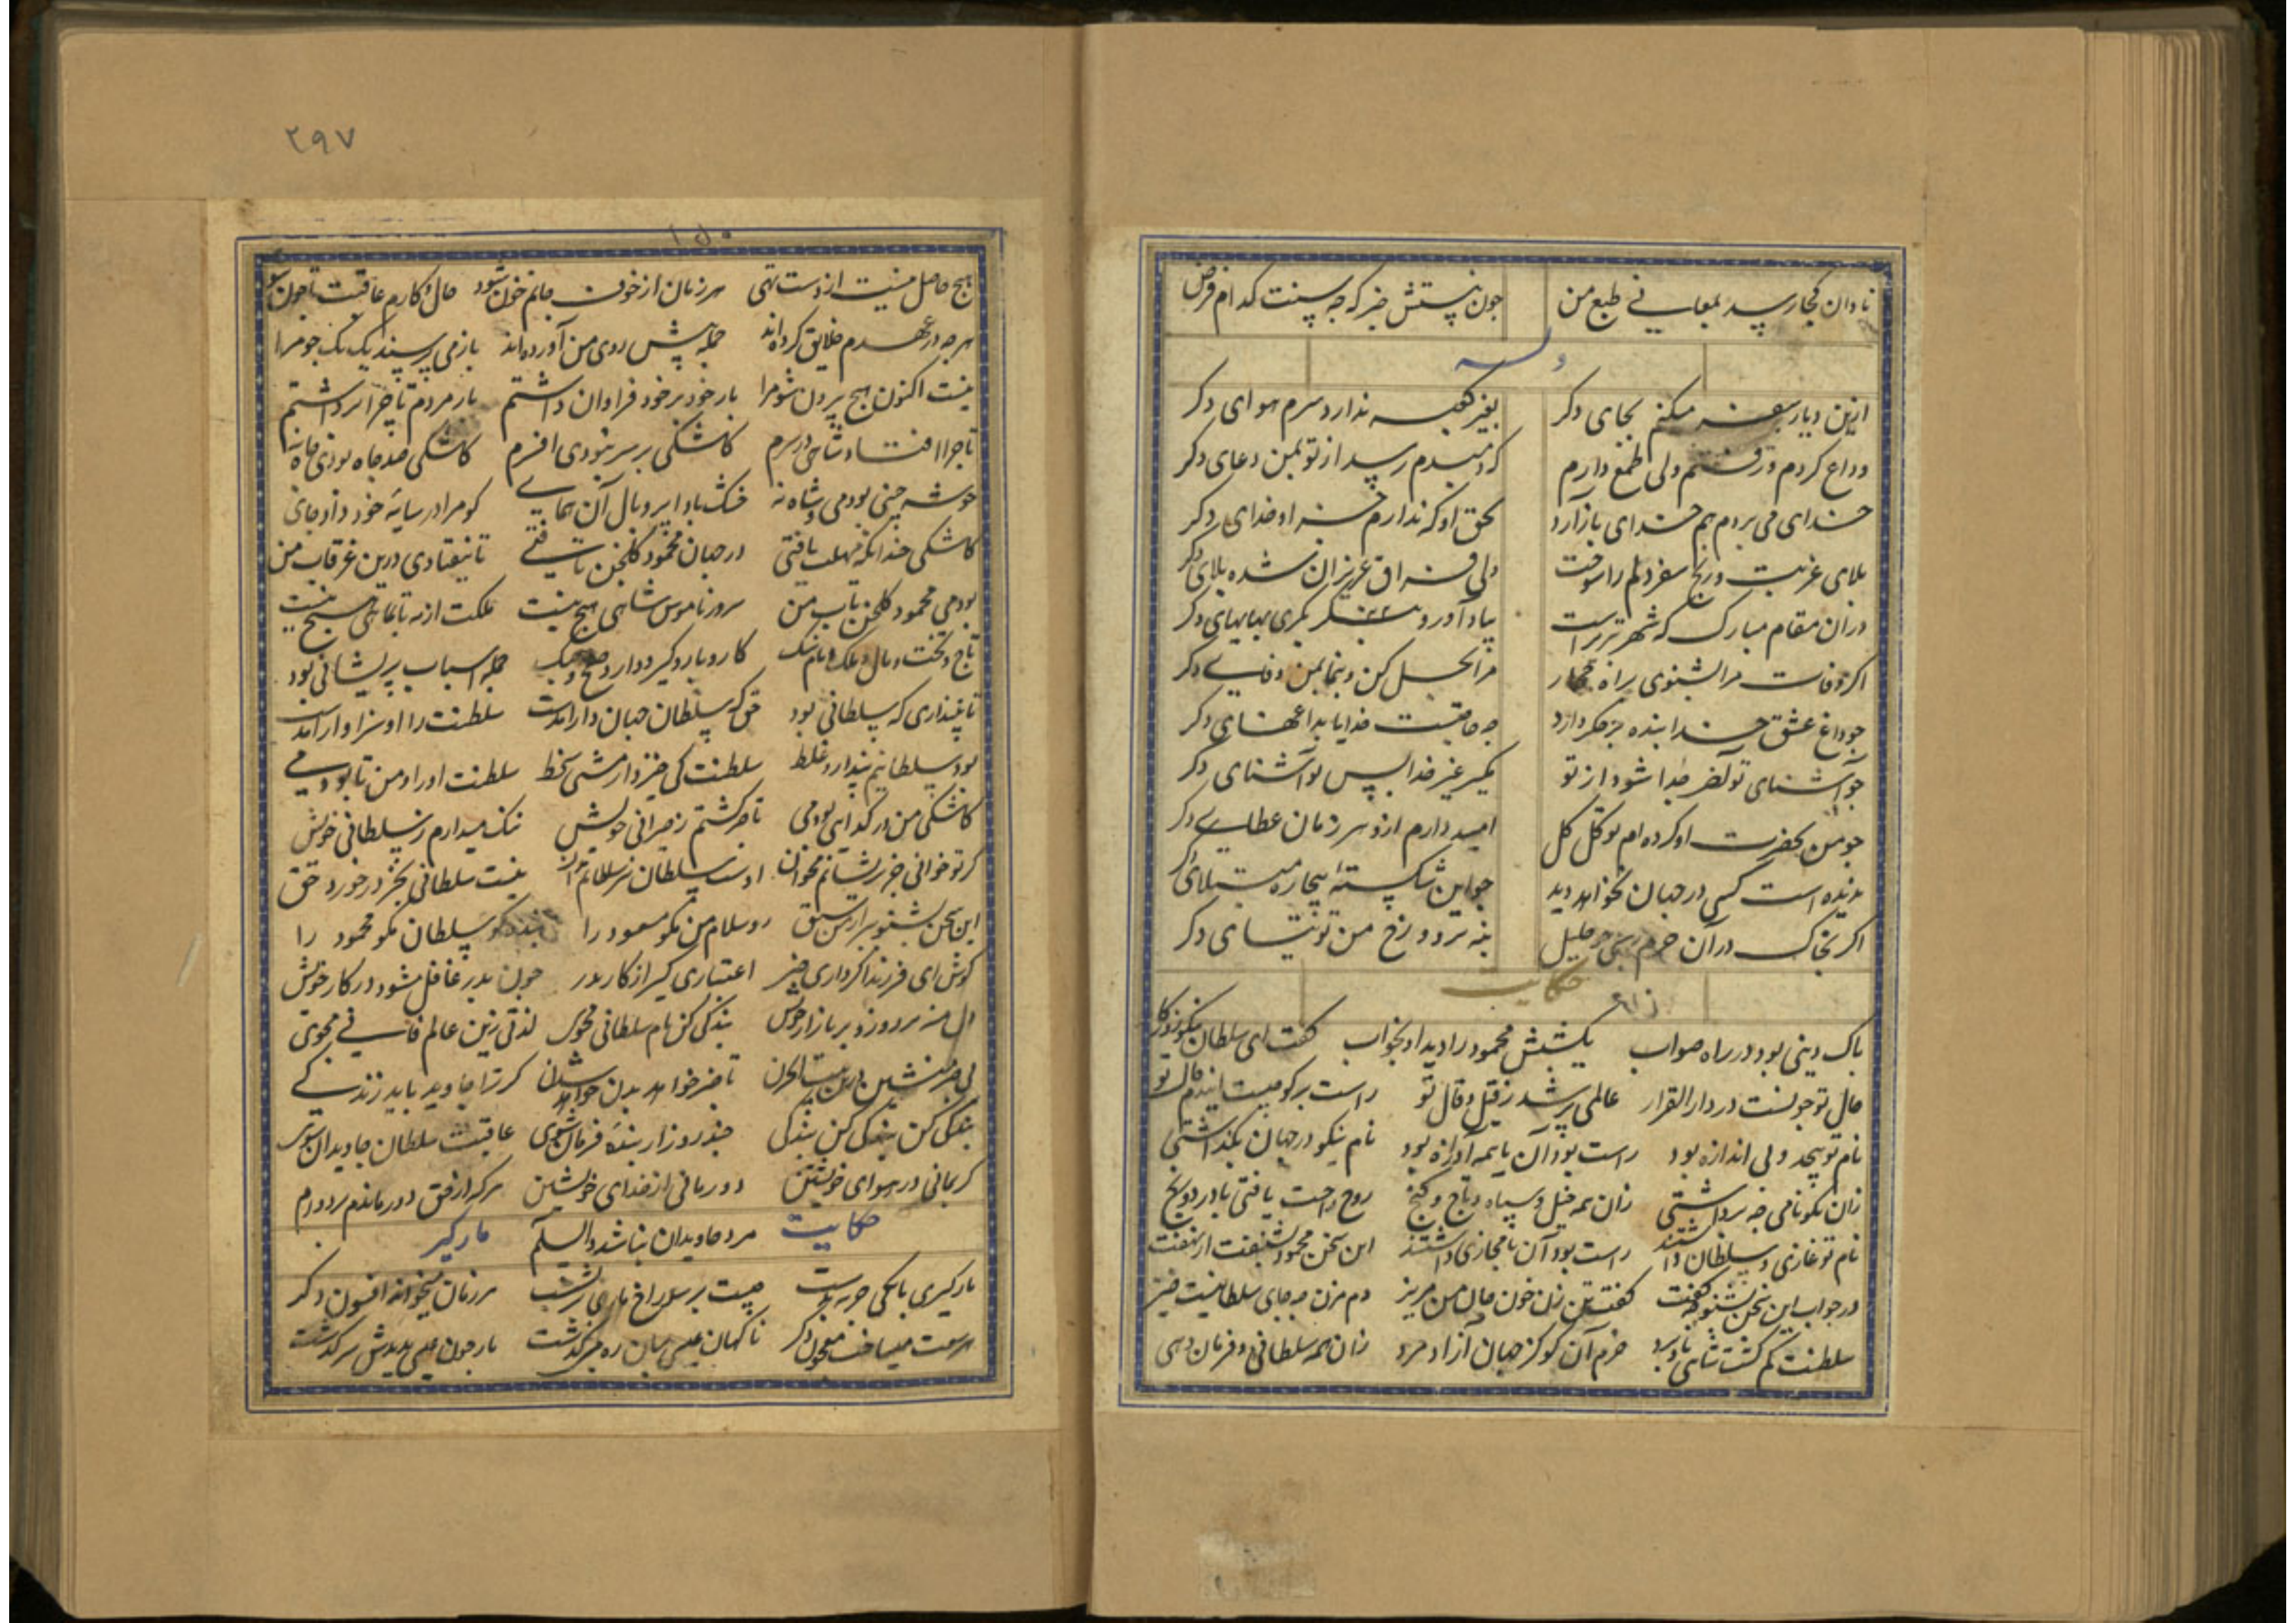 نادان کجا رسد بمعانی طبع من چون نیستش خبر که چه سنت کدام فرض
وله
ازین دیار سفر میکنم بجای دکر بغیر کعبه ندارد سرم هوای دکر
وداع کردم و رفتم ولی طمع دارم که دمبدم رسد از تو بمن دعای دکر
خدای می بردم هم خدای باز آرد بحق او که ندارم جز او خدای دکر
بلای غربت و رنج سفر دلم را سوخت ولی فراق عزیزان شده بلای دکر
در آن مقام مبارک که شهر تبریز است بیاد آور و بنکر بکری بهایهای دکر
اکر وفات مرا بشنوی براه حجاز مرا بحل کن و بنما بمن وفای دکر
چو داغ عشق خدا بنده بر جکر دارد چه حاجتست خدایا بداغهای دکر
چو آشنای تو لطف خدا شود از تو مکیر غیر خدا پس تو آشنای دکر
چو من بحضرت او کرده ام توکل کل امید دارم ازو هر زمان عطای دکر
ندیده است کسی در جهان نخواهد دید چو این شکسته بیچاره مبتلای دکر
اکر بخاک در آن حرم رسی چو خلیل بنه برو رخ من تو نیتسای دکر
حکایت
پاک دینی بود در راه صواب یکشبش محمود را دید او بخواب کفت ای سلطان نیکو روزکار
حال تو چونست در دار القرار عالمی پر شد ز قیل و قال تو راست بر کو چیست ایندم حال تو
نام تو بیحد و بی اندازه بود راست بود آن یا همه آوازه بود نام نیکو در جهان بکذاشتی
زان نکونامی چه برداشتی زان همه خیل و سپاه و تاج و کنج روح راحت یافتی یا درد و رنج
نام تو غازی و سلطان داشتند راست بود آن یا مجازی داشتند این سخن محمود بشنفت از نهفت
در جواب این سخن بشنو چه کفت کفت تن زن خون جان من مریز دم مزن چه جای سلطانیست خیز
سلطنت کم کشت شاهی باد برد خرم آن کو کز جهان آزاد مرد زان همه سلطانی و فرمان دهی
۲۹۷
هیچ حاصل نیست از دست تهی هر زمان از خوف جانم خون شود حال و کارم عاقبت تا چون شود
هر چه در عهدم خلایق کرده اند جمله پیش روی من آورده اند باز می پرسند یک یک جو مرا
نیست اکنون هیچ بیرون شو مرا بار خود بر خود فراوان داشتم بار مردم تا چرا برداشتم
تا چرا افتاد شاهی در سرم کاشکی بر سر نبودی افسرم کاشکی صد چاه بودی جاه نه
خوشه چینی بودمی و شاه نه خشک بادا پر و بال آن همای کو مرا در سایه خود داد جای
کاشکی چندانکه مهلت یافتی در جهان محمود کلخن تافتی تا نیفتادی درین غرقاب من
بودمی محمود کلخن تاب من سرور ناموس شاهی هیچ نیست مملکت از مه تا بماهی هیچ نیست
تاج و تخت و مال و ملک و نام و ننک کار و بار و کیر و دار و صلح و جنک جمله اسباب پریشانی بود
تا نپنداری که سلطانی بود حق که سلطان جهان دار آمدست سلطنت را او سزاوار آمدست
بود سلطانیم پندار و غلط سلطنت کی خیزد از مشتی سخط سلطنت او راد من تا بودمی
کاشکی من در کدایی بودمی تا خبر کشتم ز حیرانی خویش ننک میدارم ز سلطانی خویش
کر تو خوانی جز پریشانم مخوان اوست سلطان نیز سلطانم مخوان نیست سلطانی بجز در خورد حق
این سخن بشنو برادر تو سبق رو سلام من بکو مسعود را بنده کو سلطان مکو محمود را
کوش ای فرزند اکر داری خبر اعتباری کیر از کار پدر چون پدر غافل مشو در کار خویش
دل منه بر دو روزه بازار خویش بندکی کن نام سلطانی مجوی لذتی زین عالم فانی مجوی
بی خبر منشین درین بیت الحزن تا خبر خواهد بدن خواهد شدن کر ترا جاوید باید زندکی
بندکی کن بندکی کن بندکی چند روز ار بنده فرمان شوی عاقبت سلطان جاویدان شوی
کر بمانی در هوای خویشتن دور مانی از خدای خویشتن هر که از حق دور ماندم بر دوام
حکایت مرد جاویدان نباشد والسلام مارکیر
مارکیری بانکی حربه بدست چیست بر سوراخ ماری بر نشست هر زمان میخواند افسون دکر
هر سعت میساخت معجون دکر ناکهان عیسی بران ره بر کذشت مار چون عیسی بدیدش سرکذشت